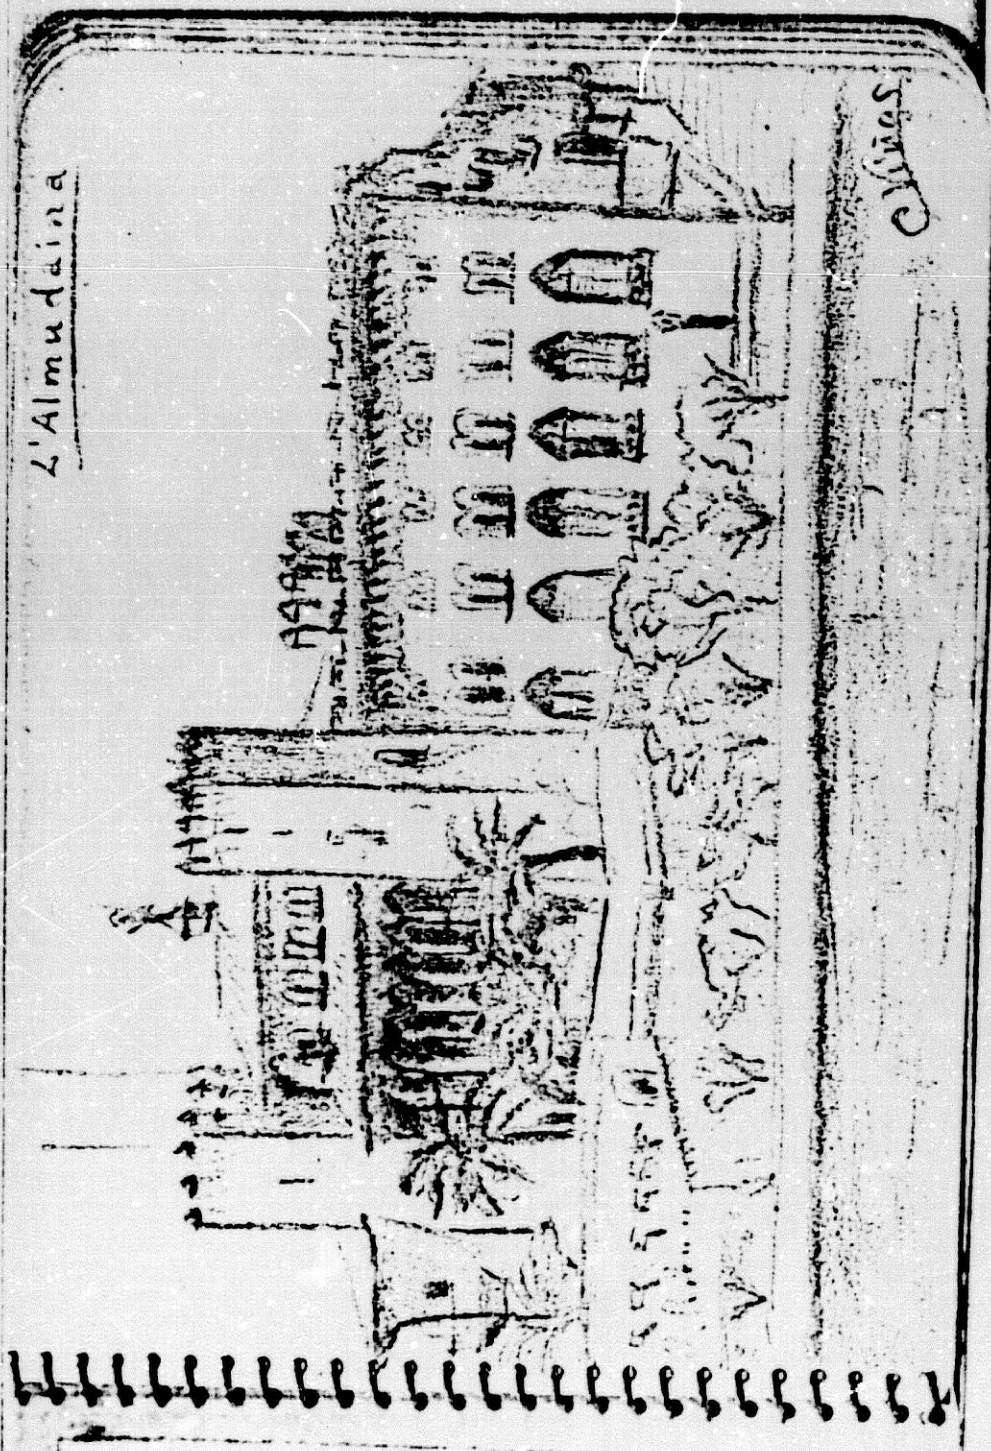 L'Almudaina
CViñas